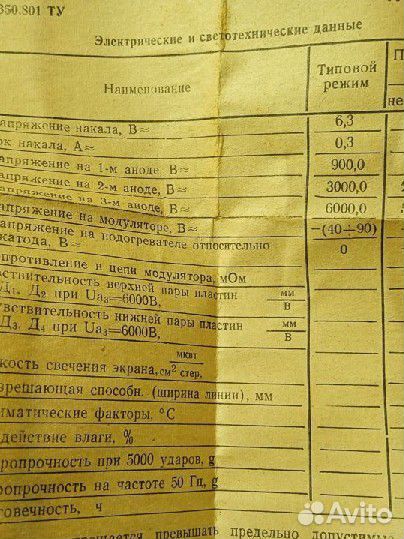 350.801 ТУ
Электрические и светотехнические данные
Наименование
Типовой режим
апряжение накала, В≈ 6,3
ок накала, А≈ 0,3
апряжение на 1-м аноде, В= 900,0
апряжение на 2-м аноде, В= 3000,0
апряжение на 3-м аноде, В= 6000,0
апряжение на модуляторе, В= —(40÷90)
апряжение на подогревателе относительно
катода, В= 0
противление в цепи модулятора, мОм
вствительность верхней пары пластин мм
Д₁, Д₂ при Uа₃=6000В, В
вствительность нижней пары пластин мм
Д₃, Д₄ при Uа₃=6000В, В
мквт
кость свечения экрана, см² стер.
зрешающая способн. (ширина линии), мм
иматические факторы, °С
действие влаги, %
ропрочность при 5000 ударов, g
ропрочность на частоте 50 Гц, g
говечность, ч
превышать предельно допустимые
Avito